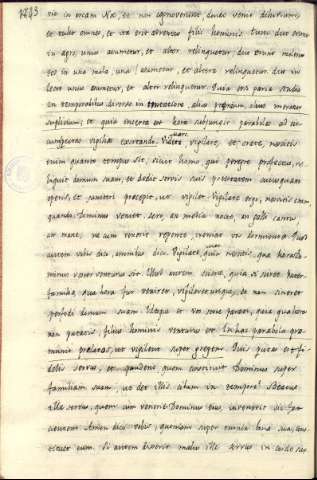 1293
sic in arcam Noe, et non cognoverunt donec venit diluvium,
et tulit omnes, et ita erit adventus filii hominis. tunc duo erunt
in agro, unus assumetur, et alter relinquetur, duae erunt molentes
in una mola, una assumetur, et altera relinquetur. duo in
lecto unus assumetur, et alter relinquetur. Quia in
temporalibus
supplicium; et quia incerta est hora subjungit parabolas ad
vigilias excitando. Videte, vigilate, et orate, nescitis
enim quando tempus sit, sicut homo qui peregre profectus, reliquit
domum suam, et dedit servis suis potestatem cuiusque
operis, et janitori praecepit, ut vigilet. Vigilate ergo, nescitis enim,
quando Dominus veniet, sero, an media nocte, an galli cantu
an mane, ne cum venerit repente, inveniat vos dormientes. Quod
autem vobis dico, omnibus dico. Vigilate, quia nescitis, qua hora Dominus
vester venturus sit. Illud autem scitote, quia si sciret paterfamilias,
qua hora fur veniret, vigilaret utique, et non sineret
perfodi domum suam. Ideoque et vos estote parati, quia qua hora
non putatis, filius hominis venturus est. In hac parabola
praelatos, ut vigilent super gregem. Quis putas est fidelis
servus, et prudens, quem constituit Dominus super
familiam suam, ut det illis cibum in tempore? Beatus
ille servus, quem cum venerit Dominus eius, invenerit sic facientem.
Amen dico vobis, quoniam super omnia bona sua, constituet
eum. Si autem dixerit malus ille servus in corde suo